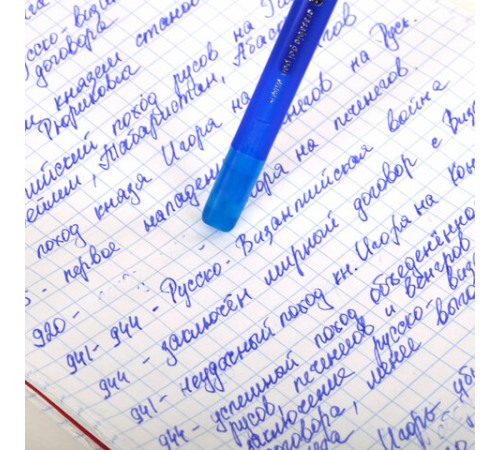 Русско-виза
договора
князем стано
Рюриковка
поход русов на
, Табаристан, Абас
поход князя Игоря на
- первое нападение
на Русь.
на печенегов
920 -
941 - 944 - Русско-Византийская война
944 - заключён мирный договор с Виза
941 - неудачный поход кн. Игоря на Кон
944 - успешный поход объединённо
русов, печенегов и венгров
заключение русско-виза
договора, менее выго
Игорь уб